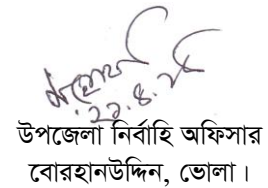 ২১.৪.২৫
উপজেলা নির্বাহি অফিসার
বোরহানউদ্দিন, ভোলা।